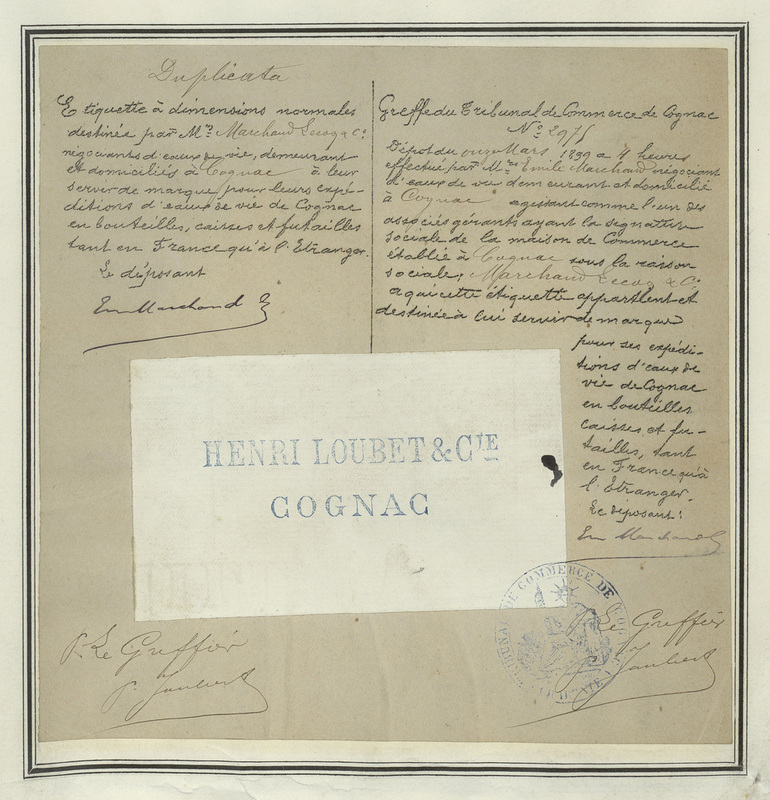 Duplicata
Etiquette à dimensions normales
destinée par Mrs Marchand Lecoq & Cie
négociants d'eaux de vie, demeurant
et domiciliés à Cognac à leur
servir de marque pour leurs expé-
ditions d'eaux de vie de Cognac
en bouteilles, caisses et futailles
tant en France qu'à l'Etranger.
Le déposant
Em Marchand
Greffe du Tribunal de Commerce de Cognac
No 2975
Dépôt du onze Mars 1899 à 4 heures
effectué par Mr Emile Marchand négociant
d'eaux de vie demeurant et domicilié
à Cognac agissant comme l'un des
associés gérants ayant la signature
sociale de la maison de Commerce
établie à Cognac sous la raison
sociale, Marchand Lecoq & Cie
a qui cette étiquette appartient et
destinée à lui servir de marque
pour ses expédi-
tions d'eaux de
vie de Cognac
en bouteilles
caisses et fu-
tailles, tant
en France qu'à
l'Etranger.
Le déposant:
Em Marchand
HENRI LOUBET & CIE
COGNAC
TRIBUNAL DE COMMERCE DE COGNAC
P. Le Greffier
P. Joubert
P. Le Greffier
P. Joubert